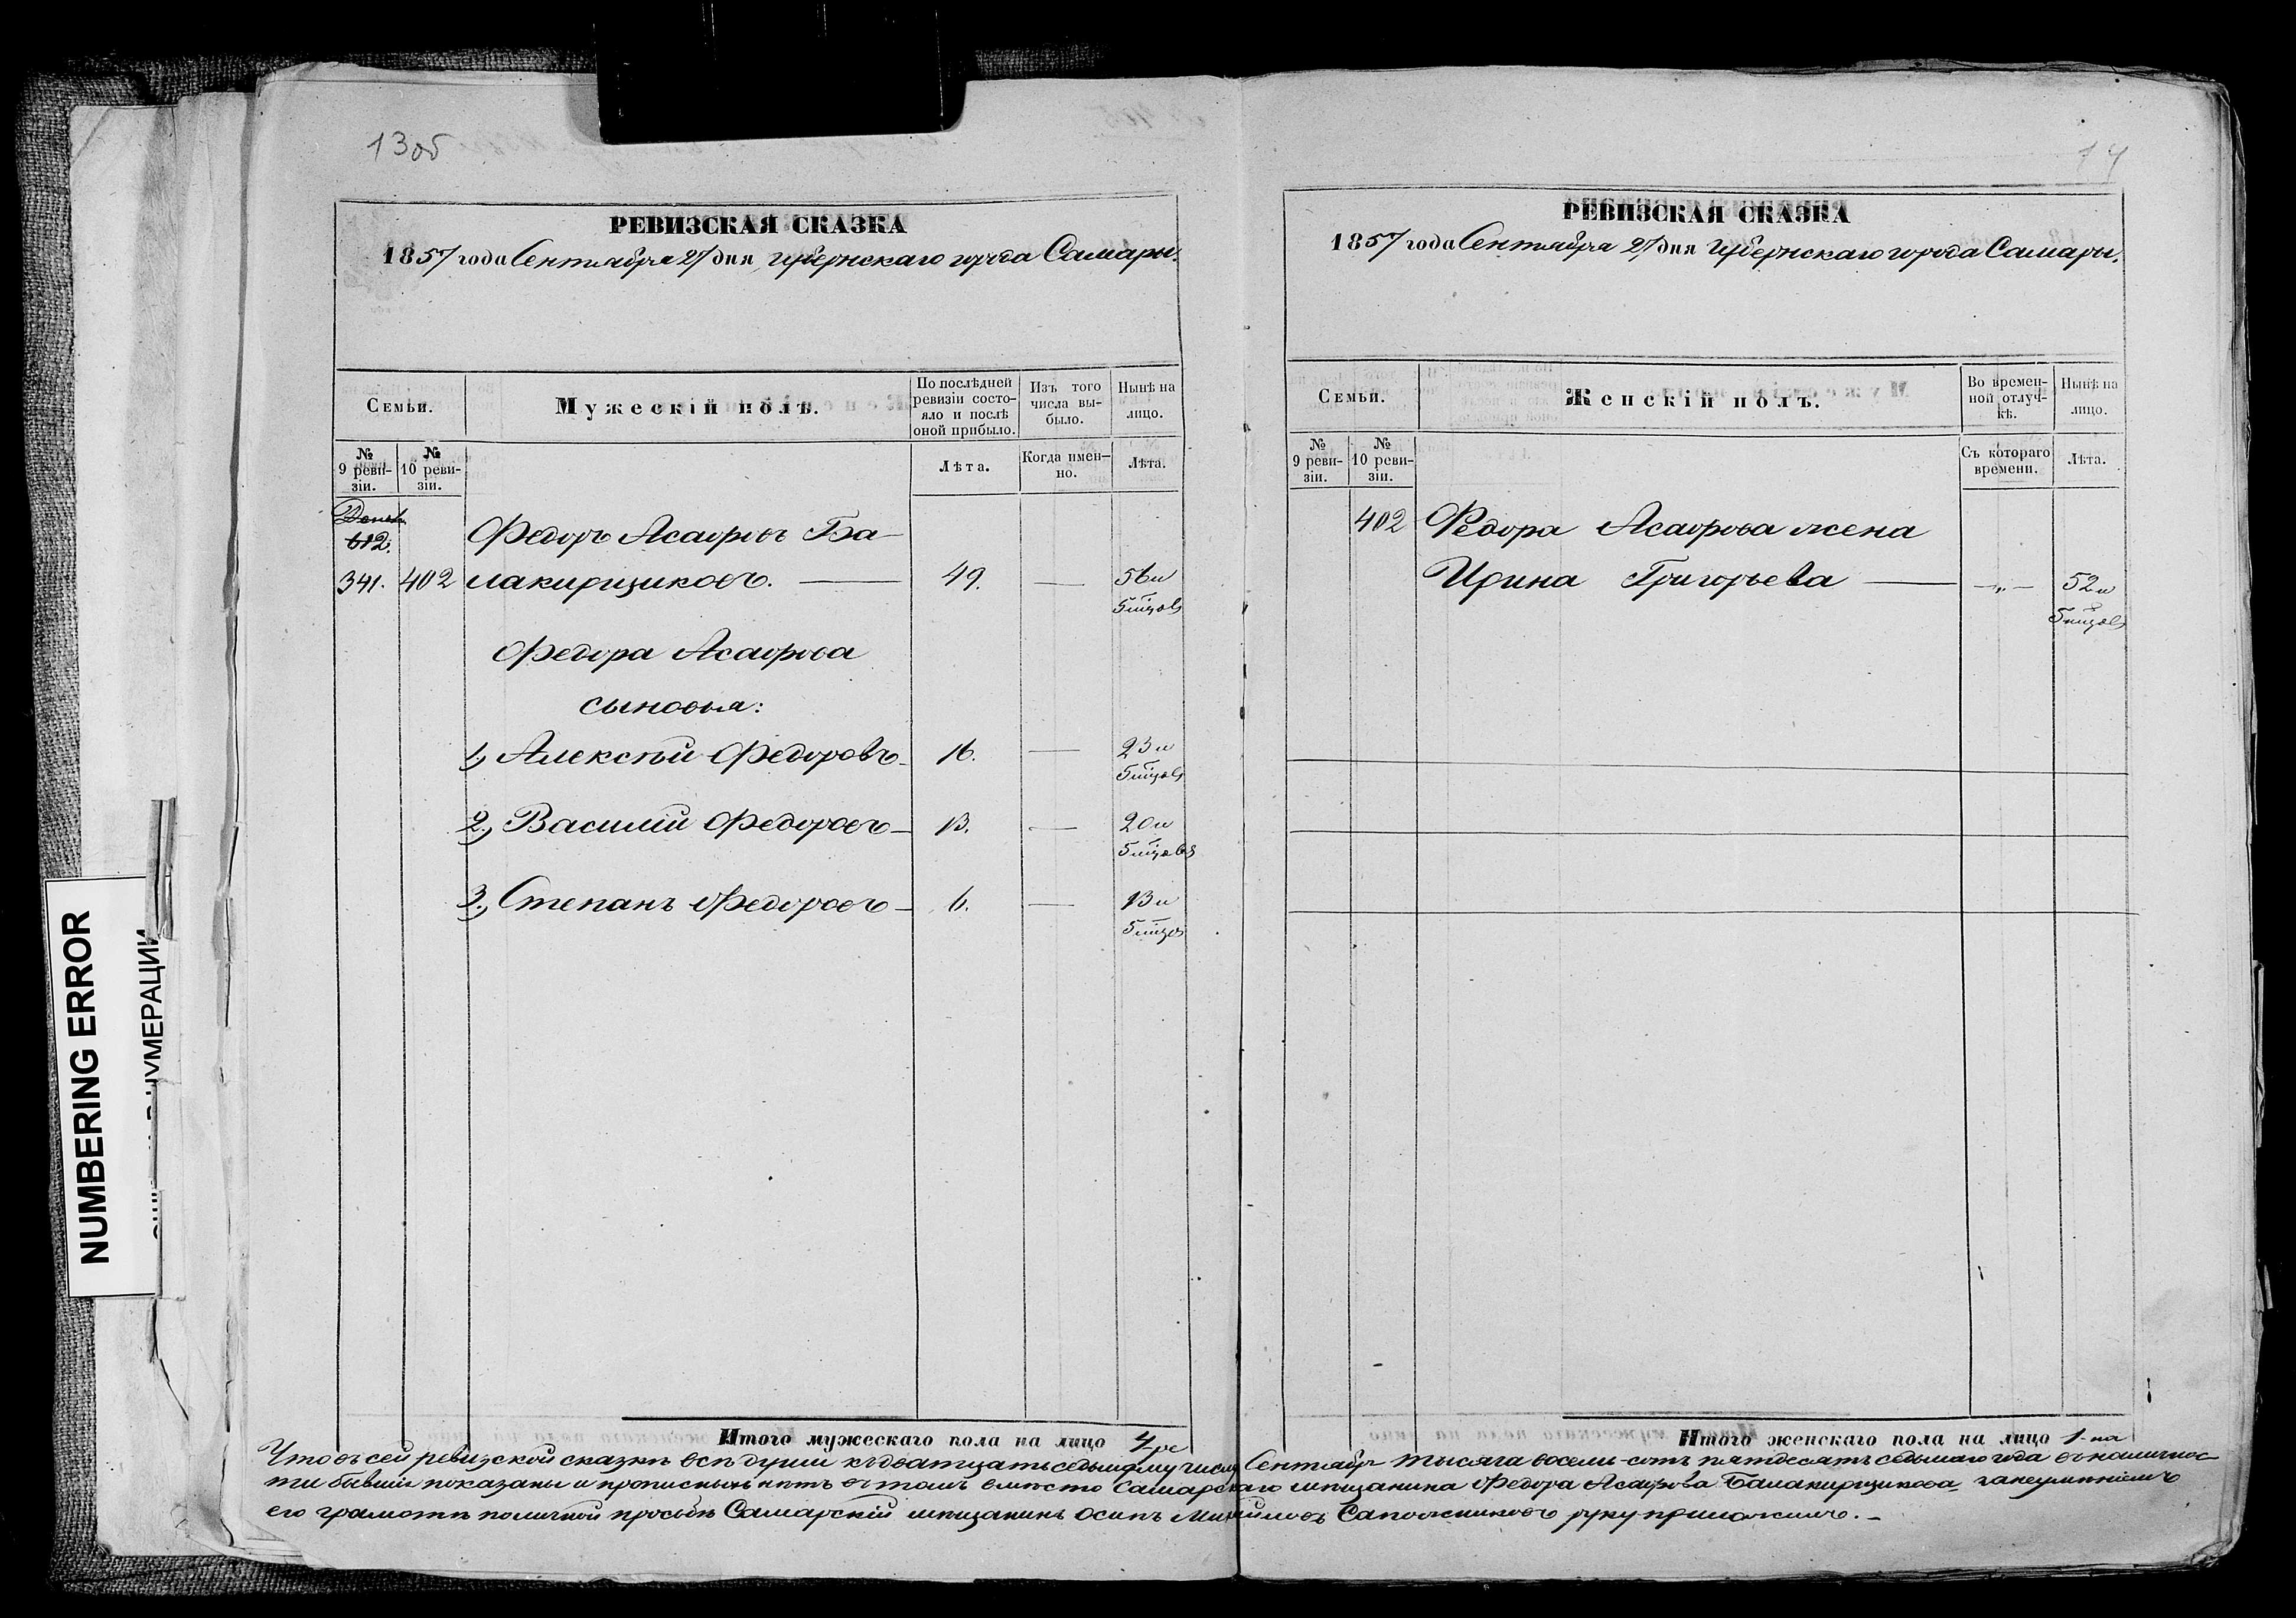 13об
РЕВИЗСКАЯ СКАЗКА
1857 года Сентября 27 дня губернскаго города Самары.
Семьи.
Мужескій полъ.
По послѣдней ревизіи состояло и послѣ оной прибыло.
Изъ того числа выбыло.
Нынѣ на лицо.
№ 9 ревизіи.
№ 10 ревизіи.
Лѣта.
Когда именно.
Лѣта.
612.
Федоръ Асафовъ Ба-
341. 402 лакирщиковъ. — 49. — 56 и
5 мцовъ
Федора Асафова
сыновья:
1, Алексѣй Федоровъ 16. — 23 и
5 мцовъ
2, Василій Федоровъ 13. — 20 и
5 мцовъ
3, Степанъ Федоровъ 6. — 13 и
5 мцовъ
Итого мужескаго пола на лицо 4ре
14
РЕВИЗСКАЯ СКАЗКА
1857 года Сентября 27 дня губернскаго города Самары.
Семьи.
Женскій полъ.
Во временной отлучкѣ.
Нынѣ на лицо.
№ 9 ревизіи.
№ 10 ревизіи.
Съ котораго времени.
Лѣта.
402 Федора Асафова жена
Ирина Григорьева — „ — 52 и
5 мцовъ
Итого женскаго пола на лицо 1-на
Что въ сей ревизской сказкѣ всѣ души къ двадцать седьмому числу Сентября тысяча восемь-сотъ пятдесятъ седьмаго года въ наличнос-
ти бывшіе показаны и прописныхъ нѣтъ въ томъ вмѣсто Самарскаго мѣщанина Федора Асафова Балакирщикова за неумѣніемъ
его грамотѣ по личной просьбѣ Самарскій мѣщанинъ Осипъ Михайловъ Сапожниковъ руку приложилъ.
NUMBERING ERROR
НУМЕРАЦИИ